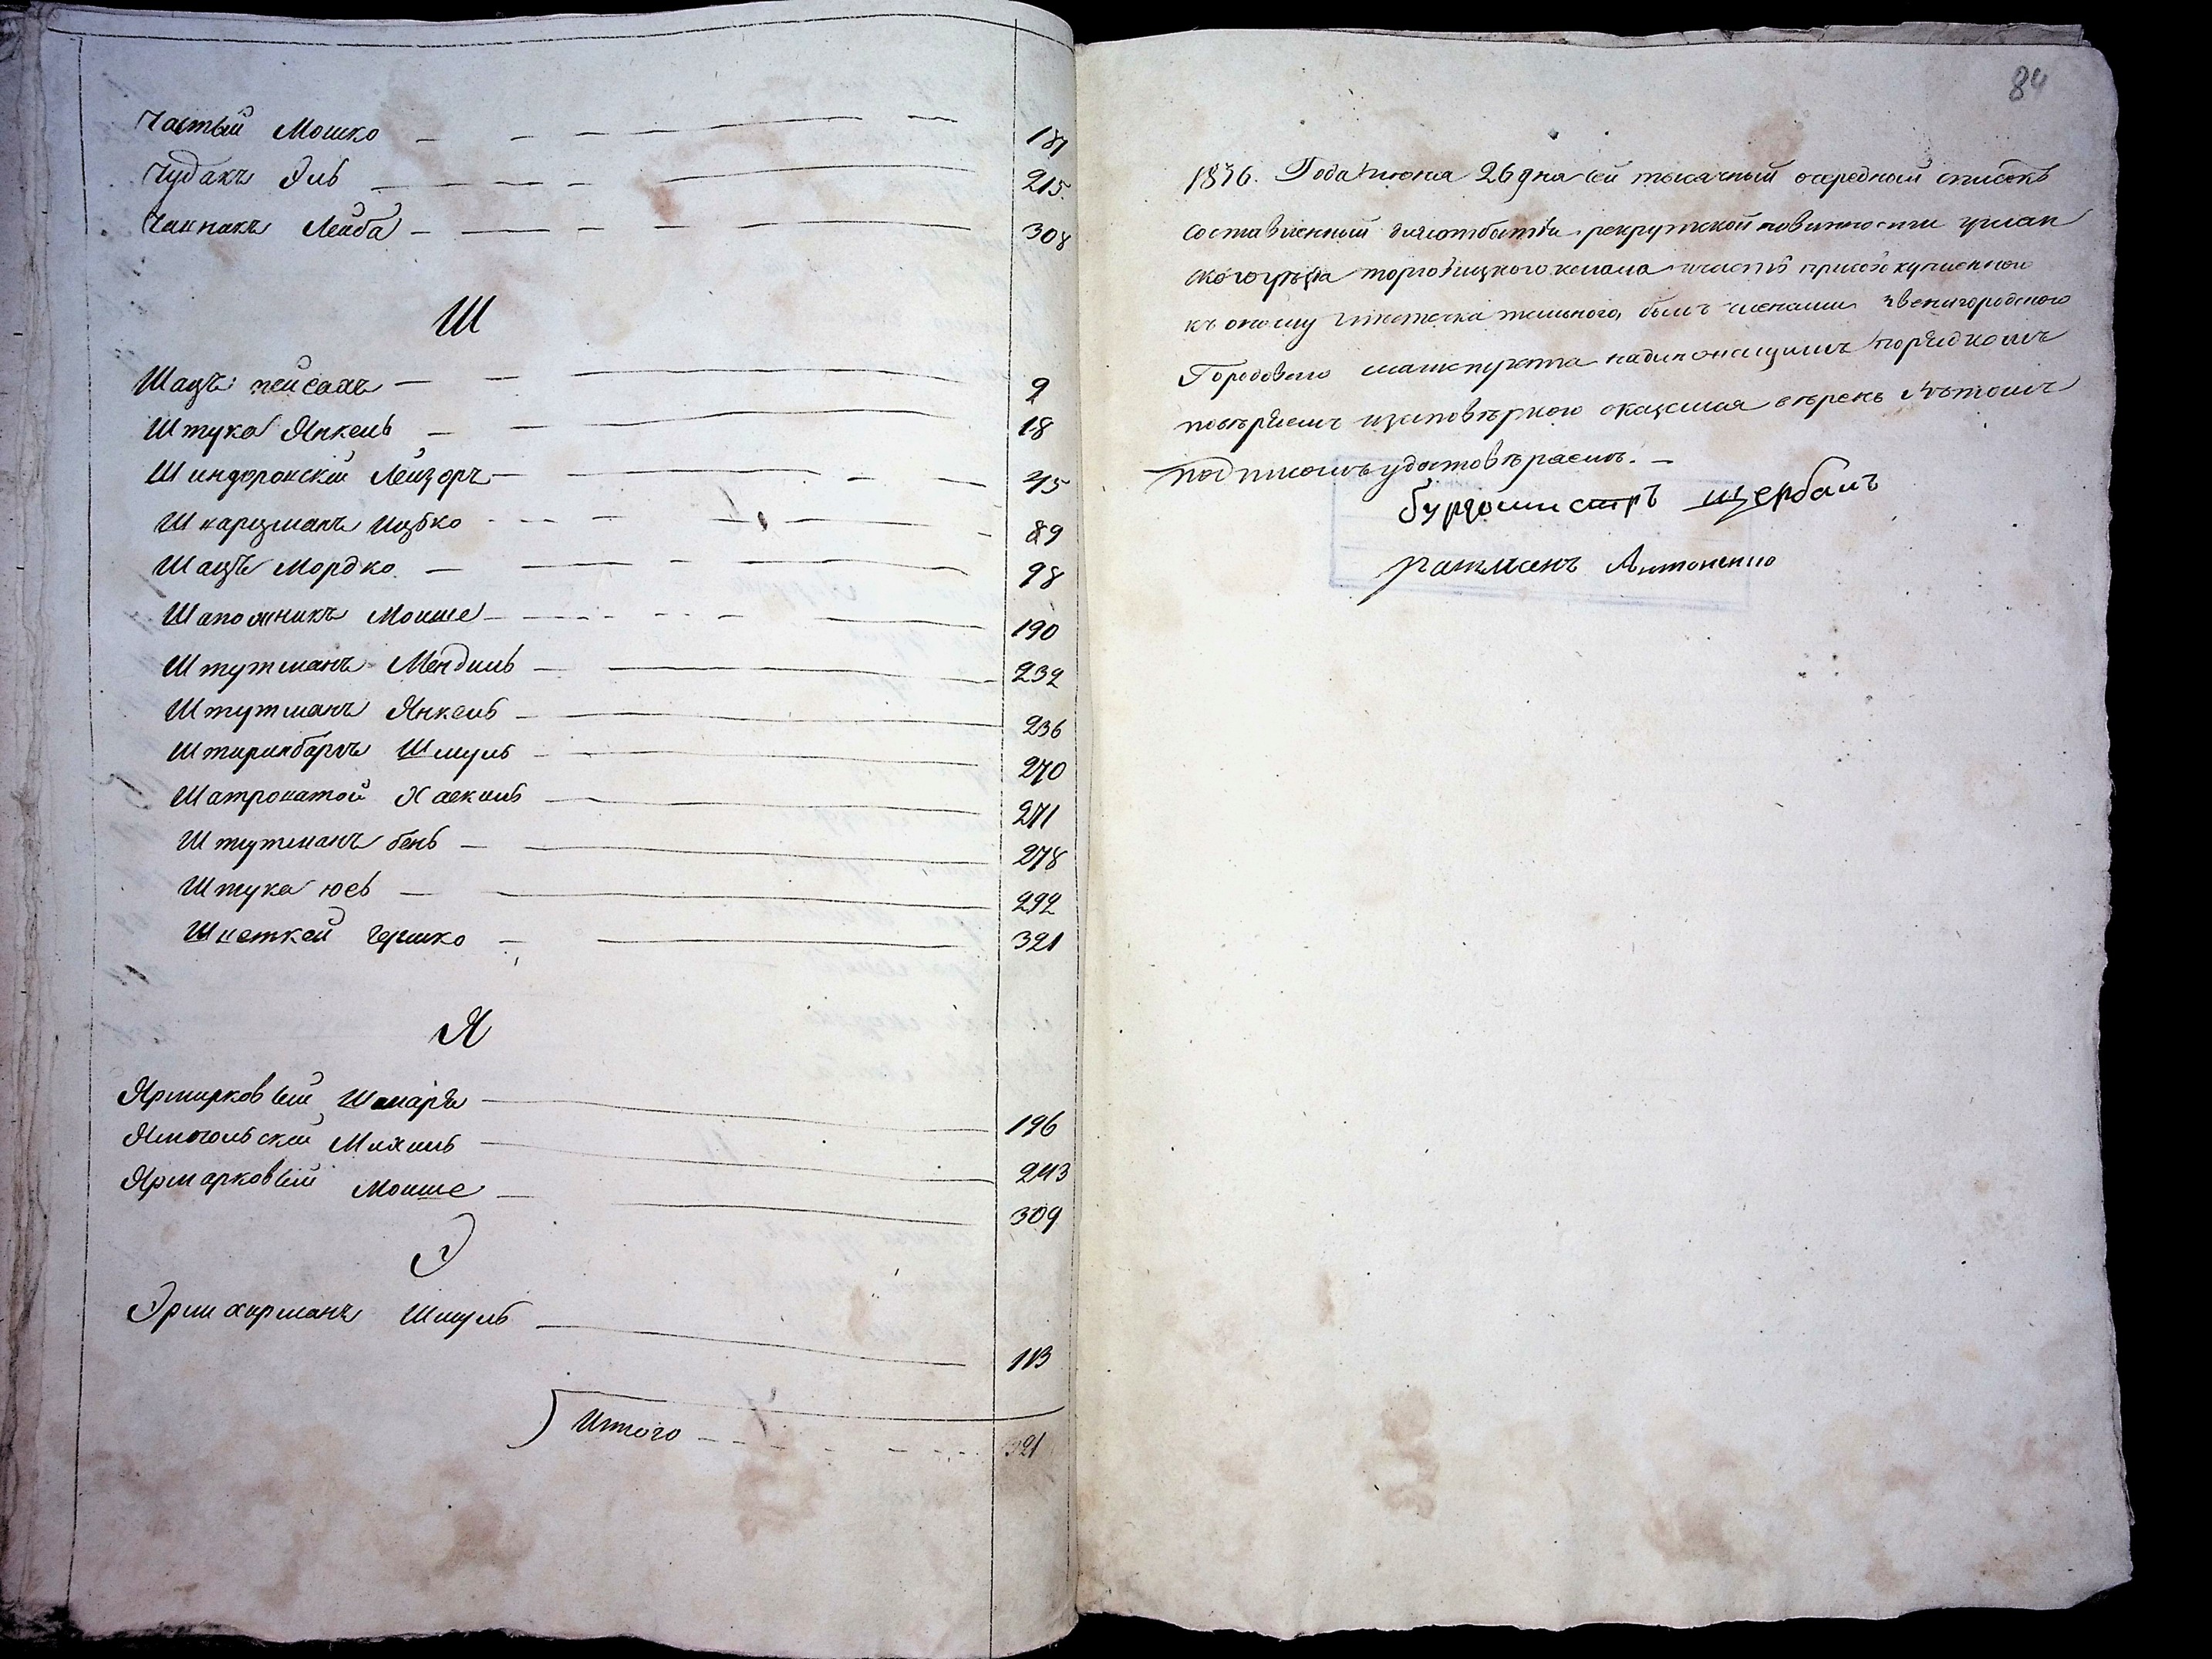 Частый Мошко 187
Чудакъ Эль 215.
Чакпакъ Лейба 308
Ш
Шацъ Пейсахъ 9
Штука Янкель 18
Шиндеровскій Лейзоръ 45
Шкарцманъ Ицько 89
Шацъ Мордко 98
Шапожникъ Моише 190
Штутманъ Мендиль 232
Штутманъ Янкель 236
Штиринбаргъ Шмуль 270
Шатроватой Хаскиль 271
Штутманъ бень 278
Штука юсь 292
Шметкой Гершко 321
Я
Ярмарковый Шмарія 196
Ямпольскій Михиль 243
Ярмарковый Моише 309
Э
Эрлихерманъ Шмуль 113
Итого 321
84
1836. Года іюня 26 дня сей тысячный очередный списокъ
составленный для отбытія рекрутской повинности уман
скаго уѣзда торговицкого кагала
къ оному былъ членами Звенигородского
Городового магистрата надлежащимъ порядкомъ
повѣряемъ и по повѣркою оказался вѣренъ вчѣтомъ
подписомъ удостовѣраемъ.
бурдомистръ щербань
ратманъ Антоненко